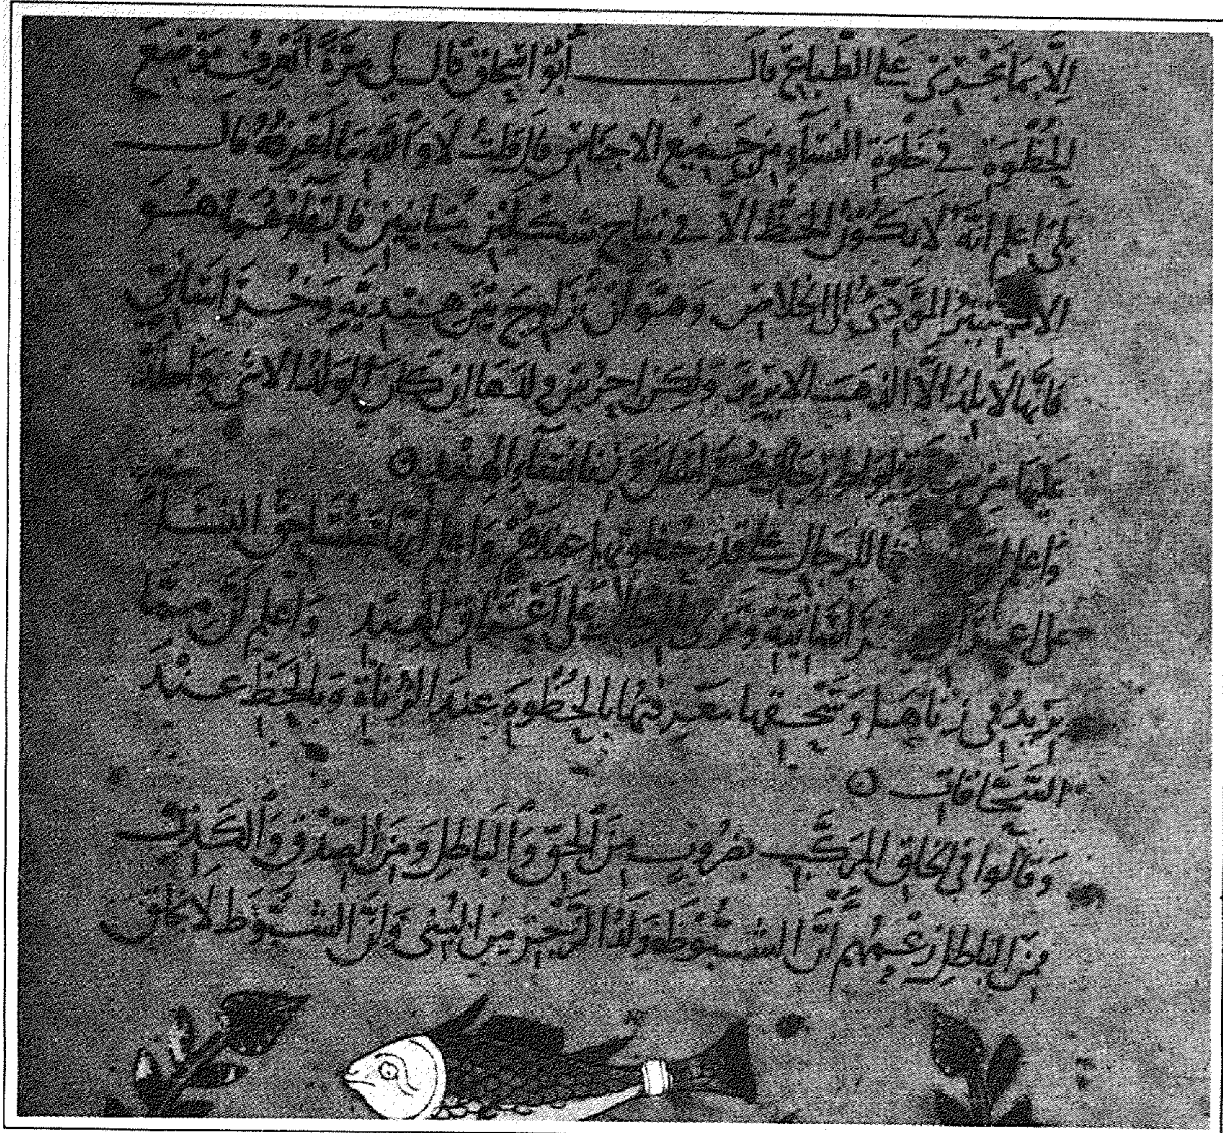 إلا بما تجد من علم الطبائع قال أبو اسحاق قال لي مرة اتعرف موضع
الحظوة في خلوة النساء من جميع الاجناس قال قلت لا والله ما اعرفه قال
بلى اعلم انه لا يكون الحظ الا في نتاج شكلين متباينين فالتقاؤهما هو
الاكسير المؤدي إلى الخلاص وهو ان تزاوج بين هندية وخراساني
فانها لا تلد الا الذهب الابريز ولكن احرس ولدها ان كان الولد الانثى
عليها من لواط رجال خراسان وزنا نساء الهند
واعلم ان للرجال على قدر حظوتها عندهم واعلم أنها ستساحق النساء
على اعراق الرجال على اعراق الهند واعلم أن مما
يزيد في زناها وسحقها معرفتها بالحظوة عند الزناة وبالحظ عند
السحاقات
وقالوا في الخلق المركب بضروب من الحق والباطل ومن الصدق والكذب
فمن الباطل زعمهم أن الشبوطة ولد الزجر من البني وأن الشبوط لا يخلق